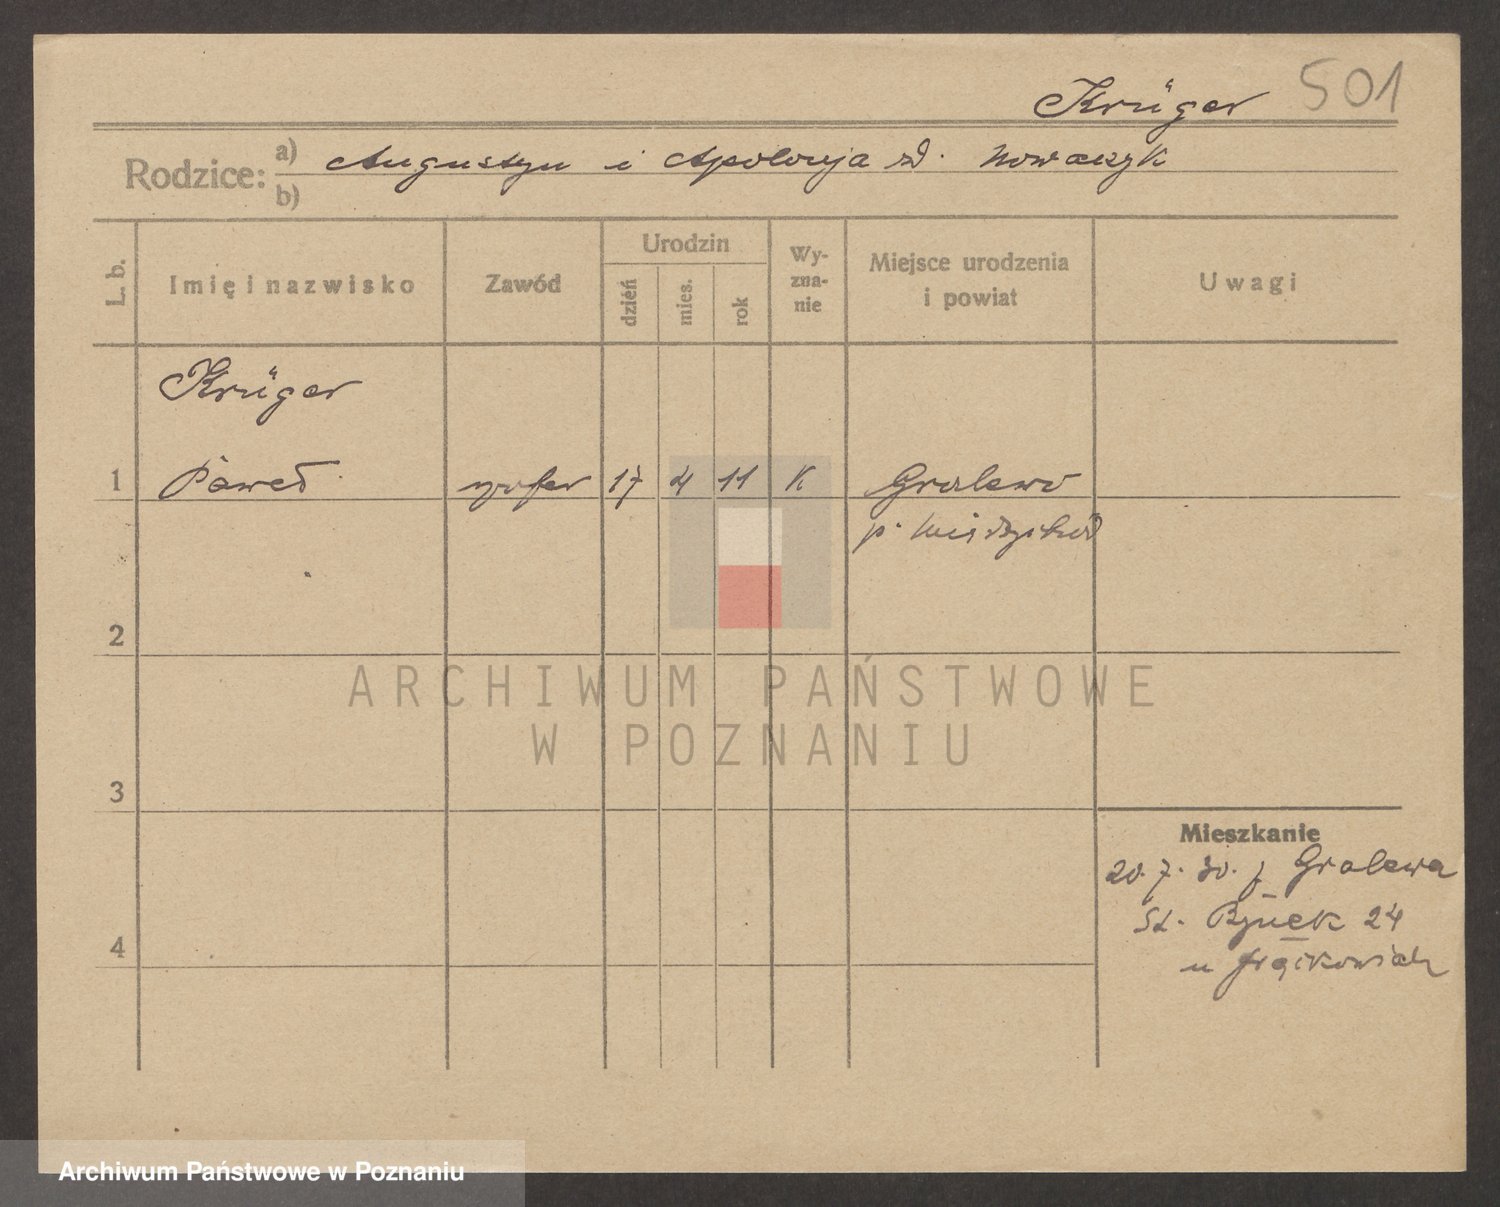 Krüger 501
Rodzice: a) Augustyn i Apolonja zd. Nowaczyk
b)
L. b.
Imię i nazwisko
Zawód
Urodzin
dzień
mies.
rok
Wy-
zna-
nie
Miejsce urodzenia
i powiat
Uwagi
Krüger
1 Paweł szofer 17 4 11 K Gralewo
p. Międzychód
2
3
4
Mieszkanie
20.7.30. z Gralewa
St. Rynek 24
u
ARCHIWUM PAŃSTWOWE
W POZNANIU
Archiwum Państwowe w Poznaniu